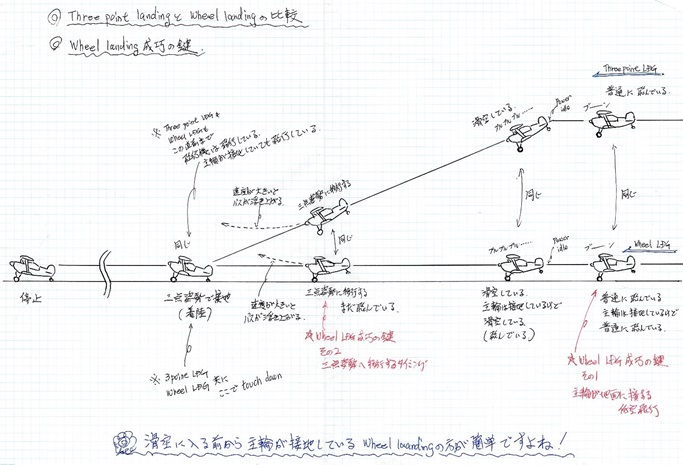 ◎ Three point landing と Wheel landing の比較
◎ Wheel landing 成功の鍵.
Three point LDG
普通に飛んでいる.
ブーン
Power idle
滑空している.
プルプルプル……
※ Three point LDG も
Wheel LDG も
この直前まで
飛行機は飛行している.
主輪が接地していても飛行している.
速度が大きいと
バスが浮き上がる.
三点姿勢に移行する
同じ
同じ
同じ
同じ
Wheel LDG
ブーン
Power idle
プルプルプル……
停止
三点姿勢で接地
(着陸)
速度が大きいと
バスが浮き上がる.
三点姿勢に移行する
まだ飛んでいる.
滑空している.
主輪は接地しているけど
滑空している.
(飛んでいる)
普通に飛んでいる
主輪は接地しているけど
普通に飛んでいる.
※ 3 point LDG
Wheel LDG 共に
ここで touch down
☆ Wheel LDG 成功の鍵
その2
三点姿勢へ移行するタイミング
☆ Wheel LDG 成功の鍵
その1
主輪が地面に接する
低空飛行
滑空に入る前から主輪が接地している Wheel landing の方が簡単ですよね!